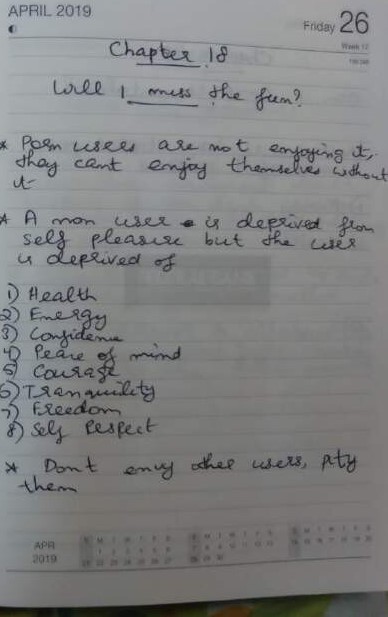 APRIL 2019
Friday 26
Chapter 18
Will I miss the fun?
* Porn users are not enjoying it,
they cant enjoy themselves without
it
* A non user is deprived from
self pleasure but the user
is deprived of
1) Health
2) Energy
3) Confidence
4) Peace of mind
5) Courage
6) Tranquility
7) Freedom
8) Self Respect
* Dont envy other users, pity
them
APR
2019